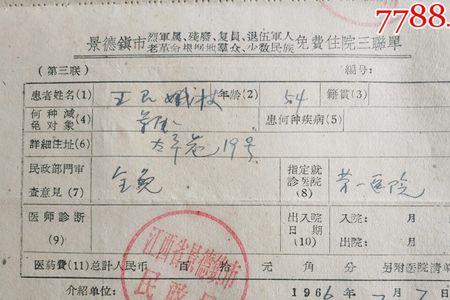 7788.
景德镇市 烈军属、残废、复员、退伍军人
老革命根据地羣众、少数民族 免费住院三联单
(第三联) 编号:
患者姓名(1) 王 年龄(2) 54 籍贯(3)
何种减免对象(4) 患何种疾病(5)
详细住址(6) 太平巷19号
民政部门审查意见(7) 全免 指定就诊医院(8) 第一医院
医师诊断(9) 出入院日期(10) 入院: 月 出院: 月
医药费(11)总计人民币 百 拾 元 角 分 另附医院清单
介绍单位: 1966年 7月7日
江西省景德镇市
民政局